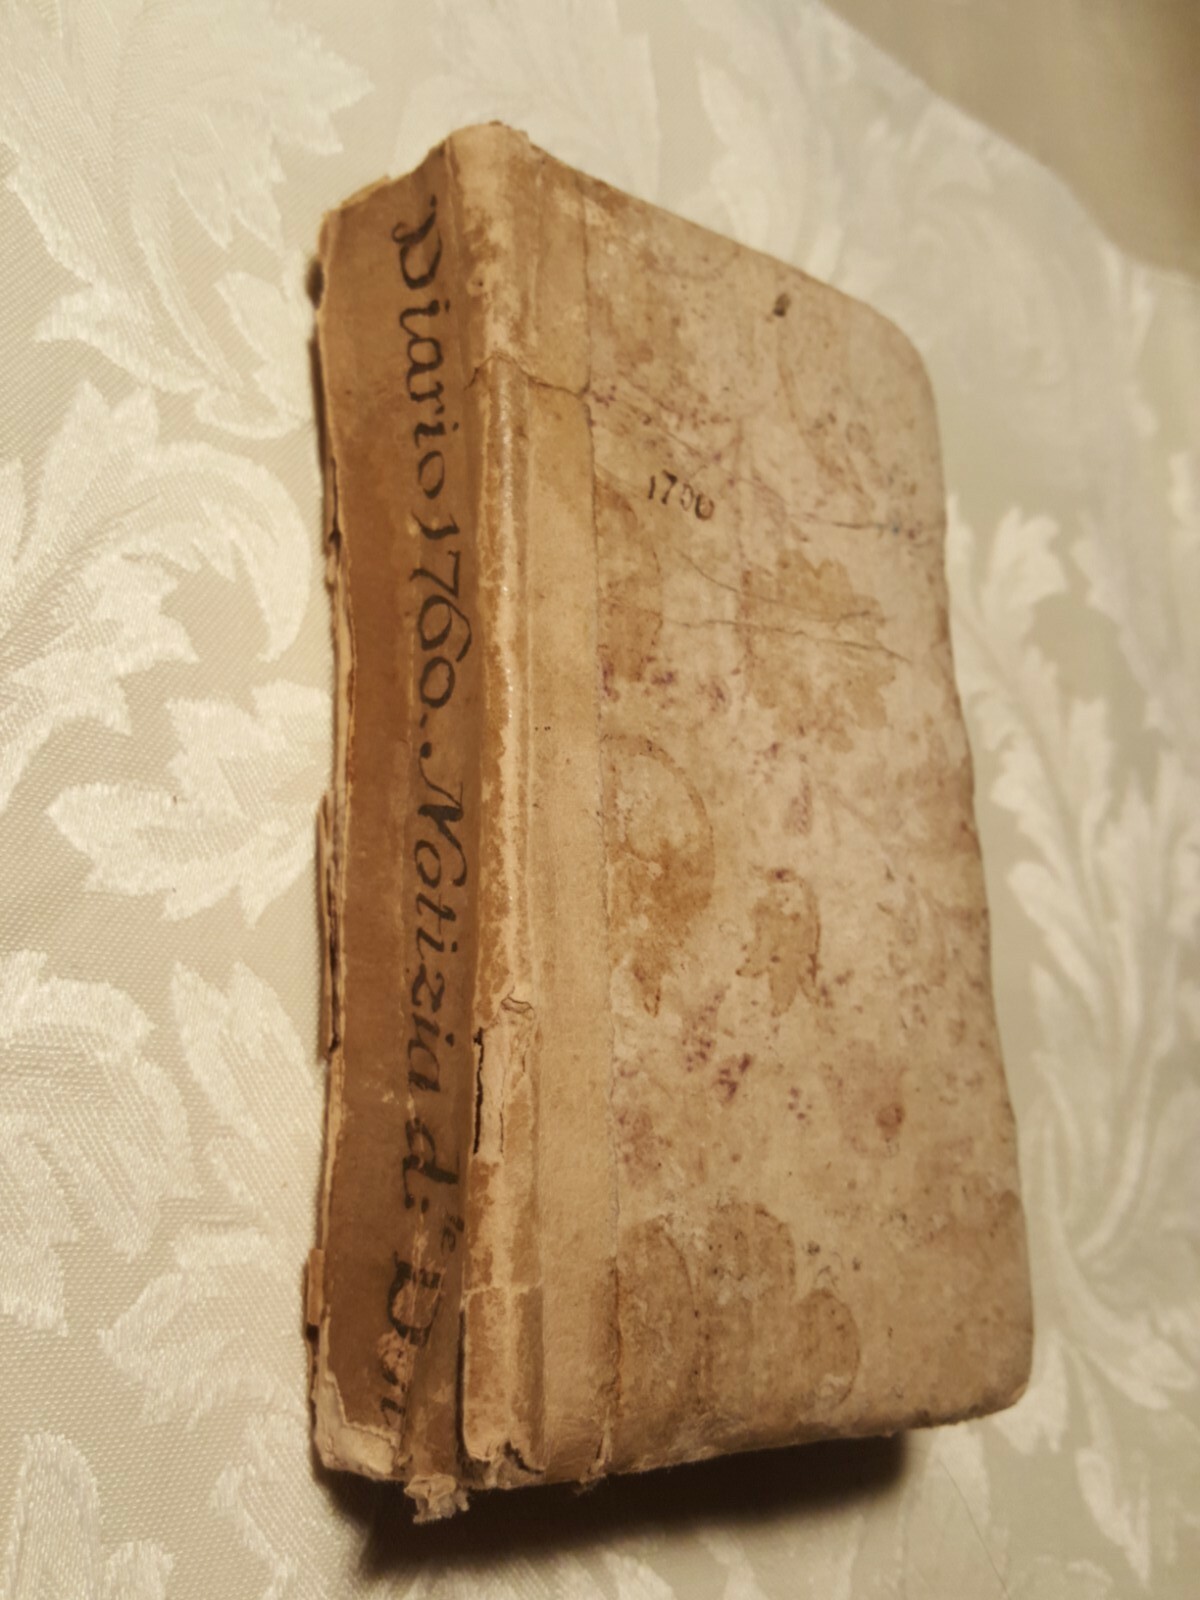 Diario 1760.. Notizia d:le
1700